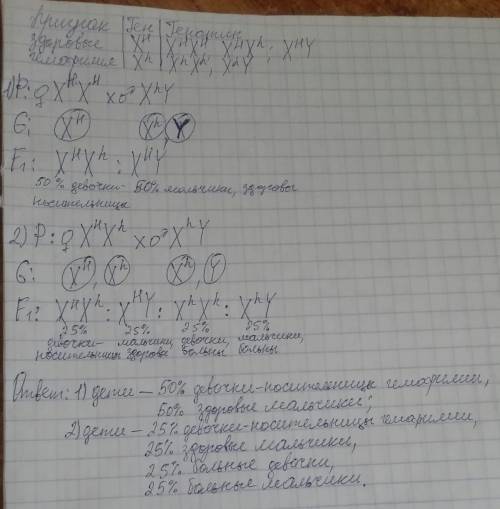 Признак | Ген | Генотип
здоровые | Xᴴ | XᴴXᴴ, XᴴXʰ; XᴴY
гемофилия | Xʰ | XʰXʰ; XʰY
1) P: ♀ XᴴXᴴ x ♂ XʰY
G: Xᴴ Xʰ Y
F₁: XᴴXʰ : XᴴY
50% девочки- 50% мальчики, здоровы
носительницы
2) P: ♀ XᴴXʰ x ♂ XʰY
G: Xᴴ, Xʰ Xʰ, Y
F₁: XᴴXʰ : XᴴY : XʰXʰ : XʰY
25% 25% 25% 25%
девочки- мальчики, девочки, мальчики,
носительницы здоровы больны больны
Ответ: 1) дети – 50% девочки-носительницы гемофилии,
50% здоровые мальчики;
2) дети – 25% девочки-носительницы гемофилии,
25% здоровые мальчики,
25% больные девочки,
25% больные мальчики.